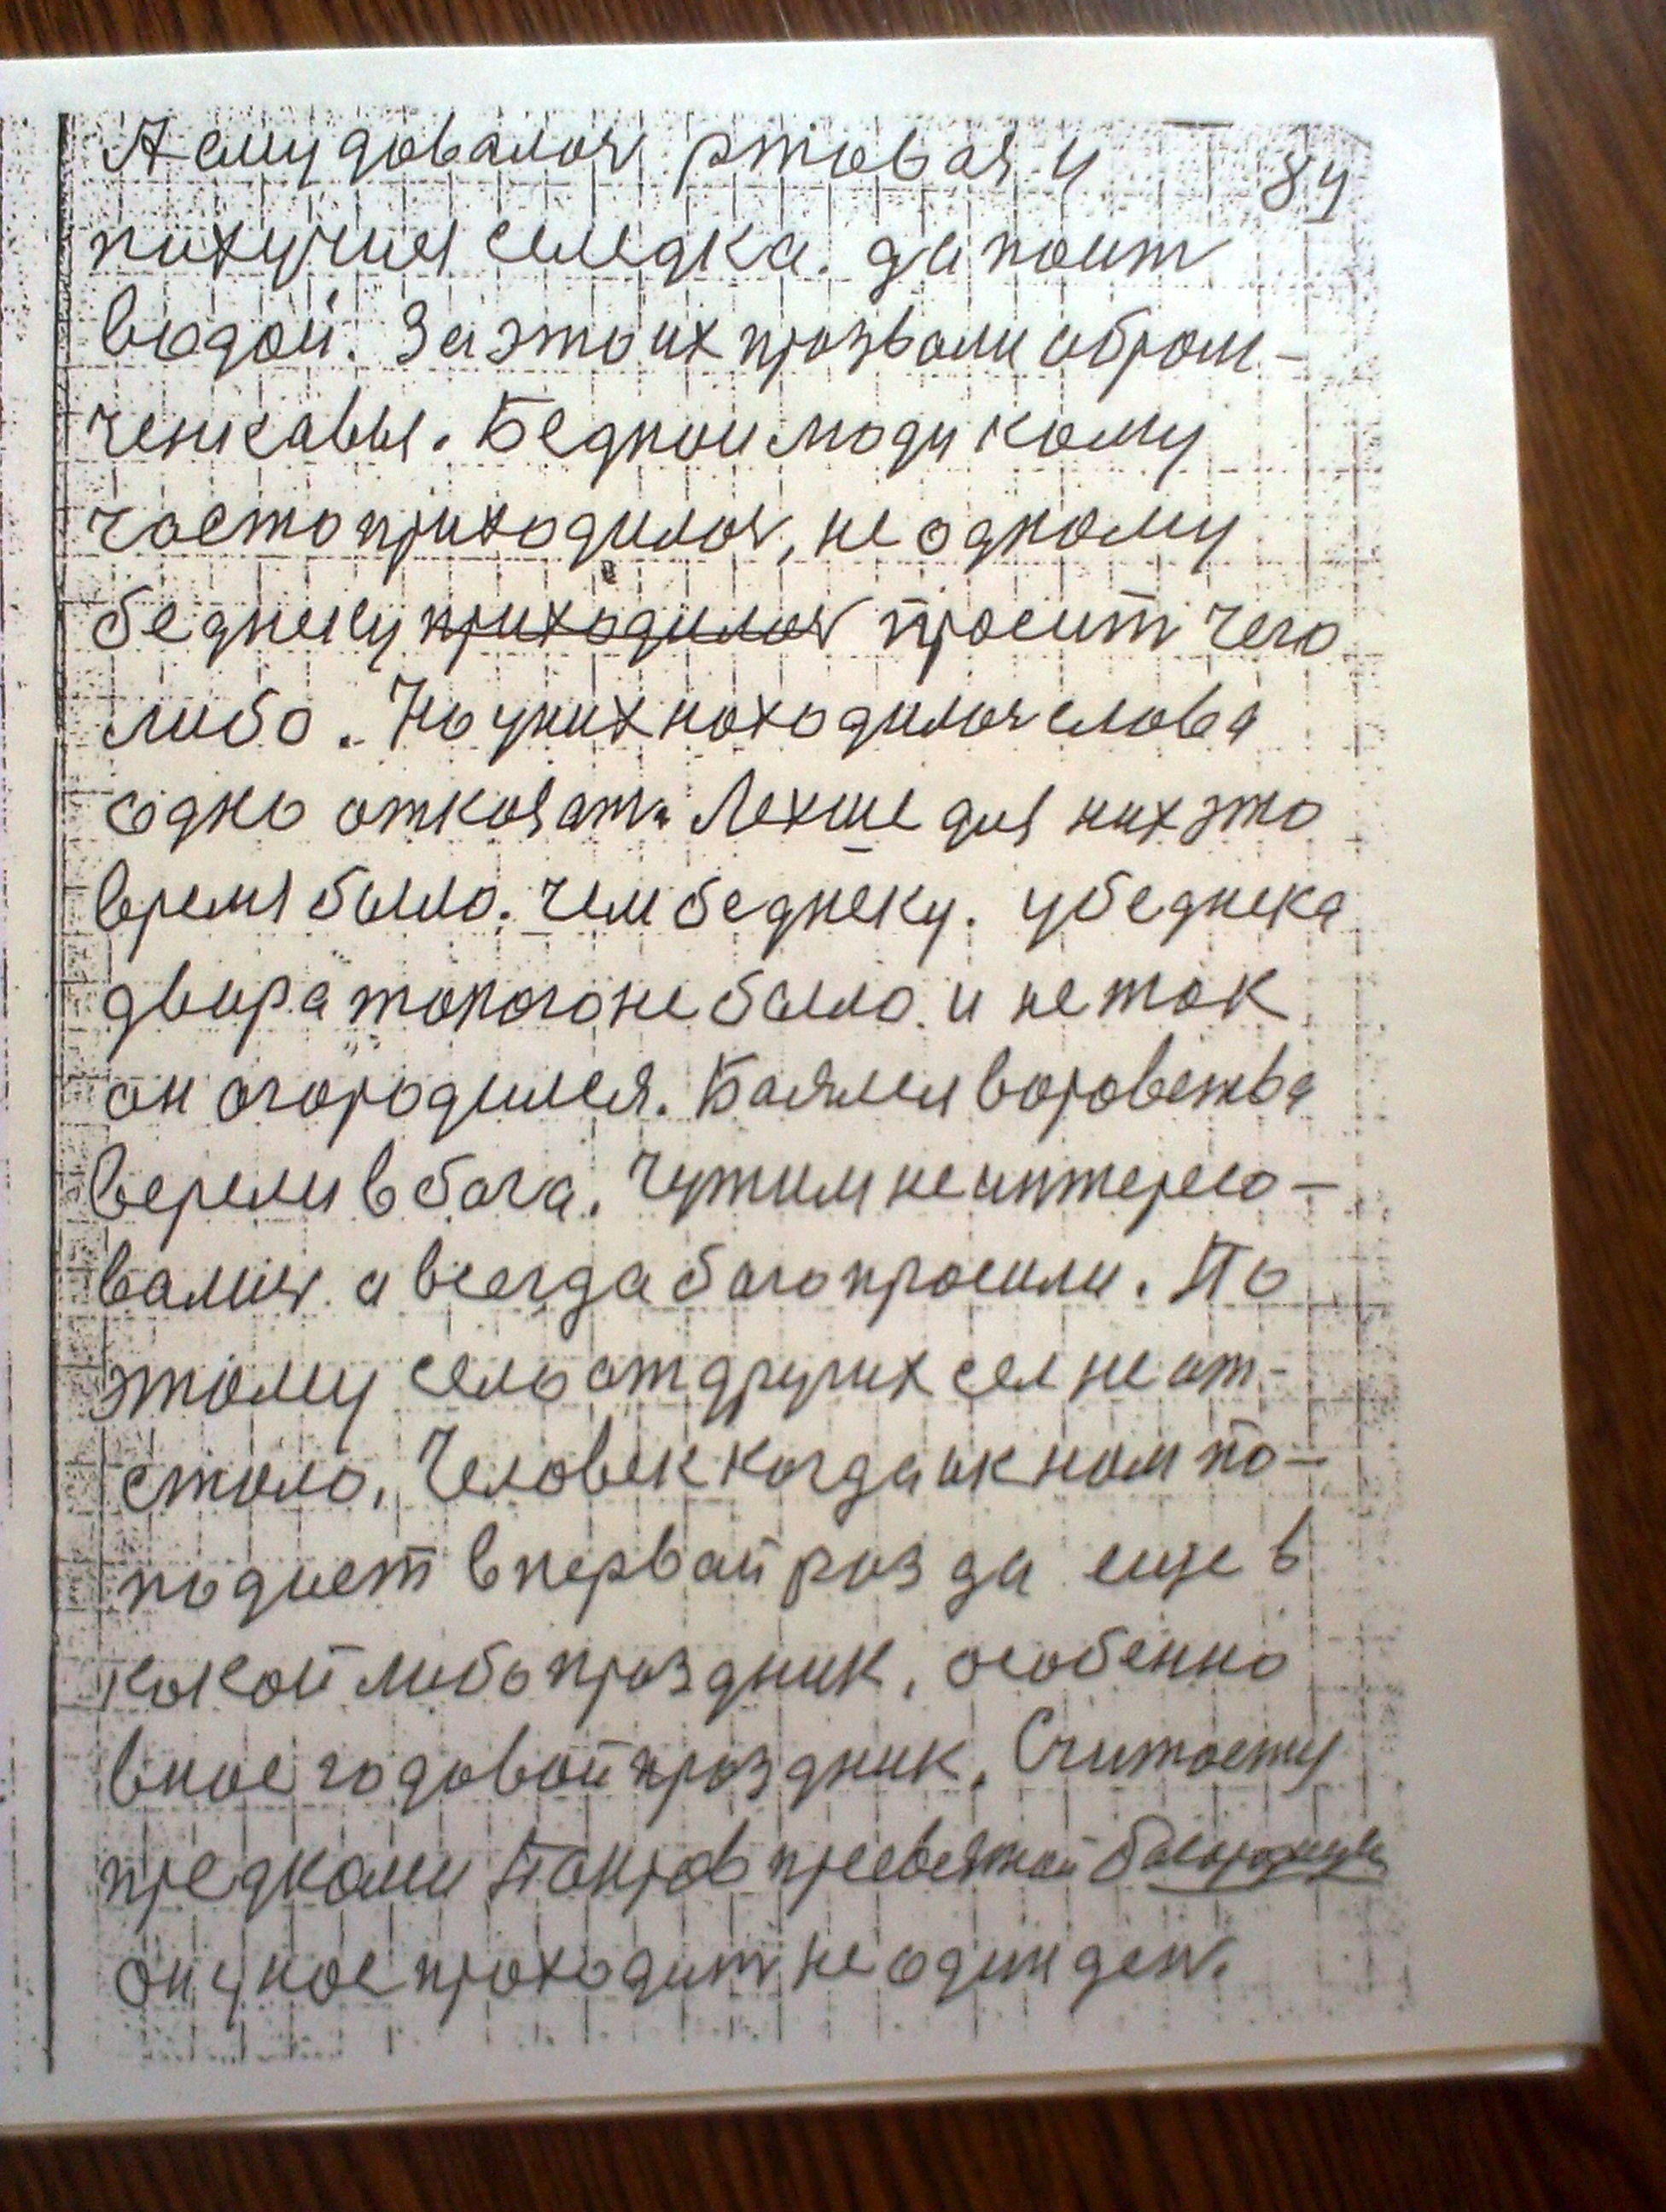 А ему довалоя ртовая и 84
пихучия селедка. да поит
водой. За это их прозвали абрам-
ченкавы. Беднои люди кому
часто приходилоя, не одному
беднику приходилоя просит чего
либо. Но у них находилоя слова
одно откозат. Лехше для них это
время было. чем беднеку. у беднека
двора токого не было и не ток
он огородился. Баялися воровства
верели в бога. Чутим не интересо-
валия а всегда бога просили. По
этому село от других сел не от-
столо. Человек когда ик ном по-
подиет в первай роз да еще в
кокой либо проздник, особенно
в нос годовой проздник. Считоетця
предкоми Покров пресвятой богородицы
он у нос проходит не один ден.